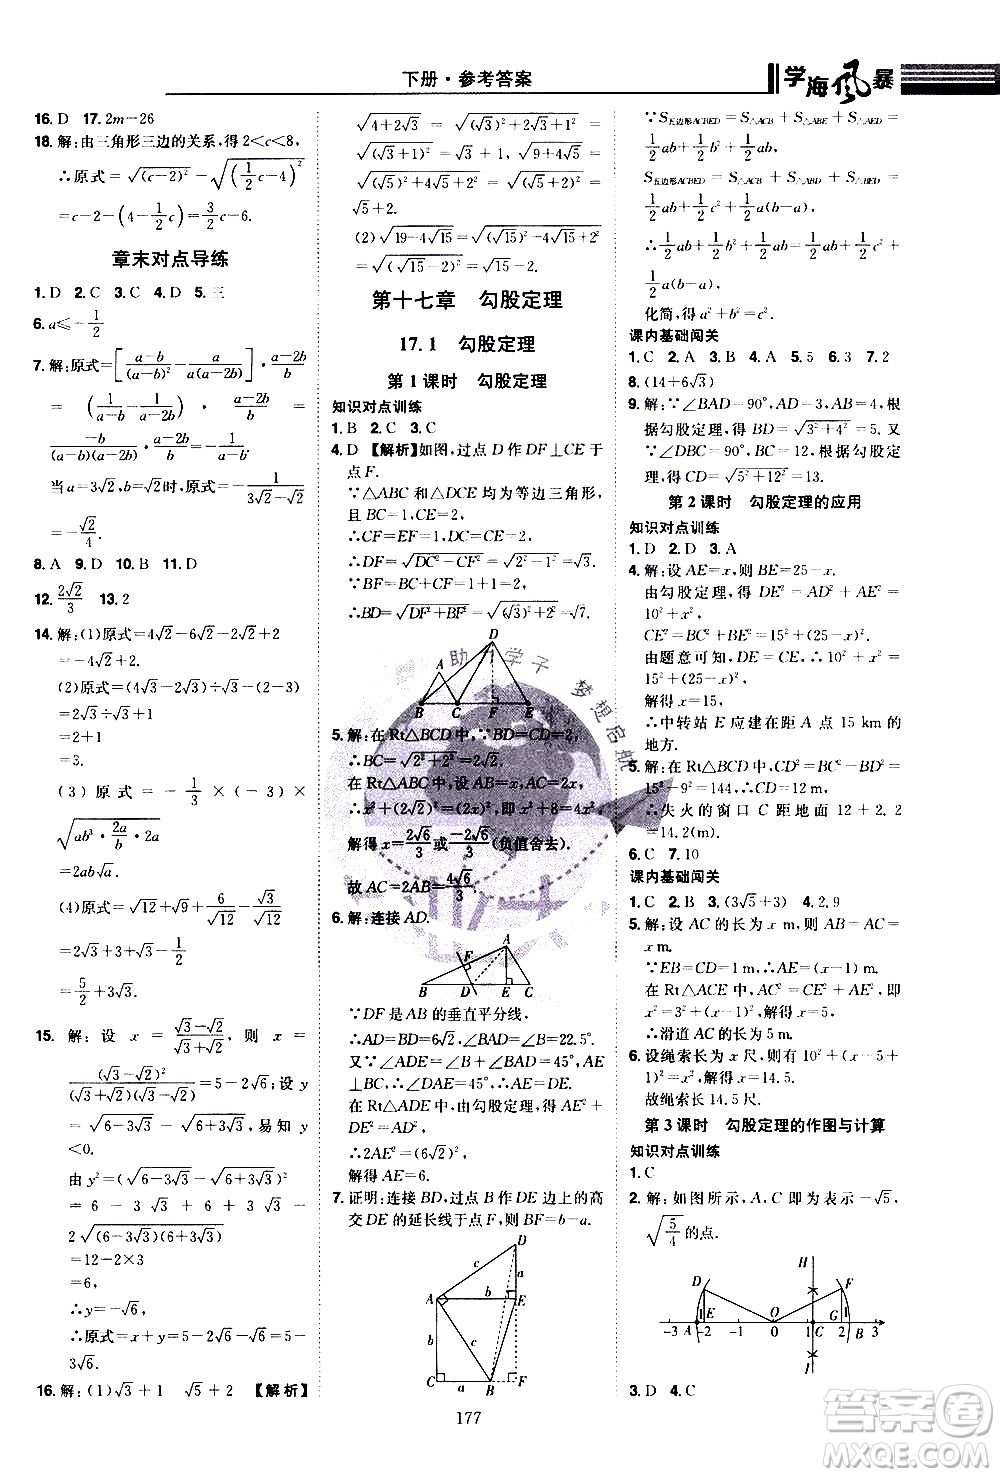 下册·参考答案
学海风暴
16. D 17. 2m－26
18. 解:由三角形三边的关系,得 2<c<8,
∴原式=√(c－2)²－√(½c－4)²
=c－2－(4－½c)=3/2c－6.
章末对点导练
1. D 2. C 3. C 4. D 5. 三
6. a≤－1/2
7. 解:原式=[(a－b)/(a－b)²－a/(a(a－b))]·(a－2b)/b
=(1/(a－b)－1/(a－b))·(a－2b)/b
当 a=3√2,b=√2时,原式=－1/(3√2－√2)
=－√2/4.
8. A 9. D 10. B 11. D
12. 2√2/3 13. 2
14. 解:(1)原式=4√2－6√2－2√2+2
=－4√2+2.
(2)原式=(4√3－2√3)÷2√3+2
=2√3÷2√3+2
=1+2
=3.
(3) 原式=－1/3×(－3)×
√(ab³·2a/b·2a)
=2ab√a.
(4)原式=√12+√9+6/√12－√3/√12
=2√3+3+√3－1/2
=5/2+3√3.
15. 解:设 x=(√3－√2)/(√3+√2),则 x=
(√3－√2)²/((√3+√2)(√3－√2))=5－2√6;设 y
=√(6－3√3)－√(6+3√3),易知 y
<0.
由 y²=(√(6－3√3)－√(6+3√3))²
=6－3√3+6+3√3－
2√((6－3√3)(6+3√3))
=12－2×3
=6,
∴y=－√6.
∴原式=5－2√6－√6=5－
3√6.
16. 解:(1)√3+1 √5+2 【解析】
√(4+2√3)=√(3+2√3+1²)=
√(√3+1)²=√3+1,√(9+4√5)=
√((√5)²+4√5+2²)=√(√5+2)²=
√5+2.
(2)√(19－4√15)=√((√15)²－4√15+2²)
=√(√15－2)²=√15－2.
第十七章 勾股定理
17.1 勾股定理
第1课时 勾股定理
知识对点训练
1. B 2. C 3. C
4. D 【解析】如图,过点 D 作 DF⊥CE 于
点 F.
∵△ABC 和△DCE 均为等边三角形,
且 BC=1,CE=2,
∴CF=EF=1,BF=1+1=2.
∴DF=√(DC²－CF²)=√(2²－1²)=√3.
∵BF=BC+CF=1+1=2,
∴BD=√(DF²+BF²)=√((√3)²+2²)=√7.
A D B C F E
5. 解:在 Rt△BCD 中,∵BD=CD=2,
∴BC=√(2²+2²)=2√2.
在 Rt△ABC 中,设 AB=x,AC=2x,
∴x²+(2√2)²=(2x)²,即 x²=8/3.
解得 x=2√6/3或－2√6/3(负值舍去).
故 AC=2AB=4√6/3.
6. 解:连接 AD.
F A B D E C
∵DF 是 AB 的垂直平分线,
∴AD=BD=6√2,∠B=∠BAD=22.5°.
又∵∠C=45°,AE
⊥BC,∴∠ADE=45°,AE=DE.
在 Rt△ADE 中,由勾股定理,得 AE²+DE²=
AD².
∴2AE²=(6√2)².
解得 AE=6.
7. 证明:连接 BD,过点 B 作 DE 边上的高
交 DE 的延长线于点 F,则 BF=b－a.
D c a A b E c b C a B F
∵S五边形ACBED=S△ACB+S△ABE+S△AED=
½ab+½b²+½ab,
S五边形ACBED=S△ACB+S△ABD+S△BDE=
½ab+½c²+½a(b－a),
∴½ab+½b²+½ab=½ab+½c²+
½a(b－a).
化简,得 a²+b²=c².
课内基础闯关
1. C 2. A 3. A 4. A 5. 5 6. 3 7. 2
8. (14+6√3)
9. 解:∵∠BAD=90°,AD=3,AB=4,
根据勾股定理,BD=√(3²+4²)=5.又
∵∠DBC=90°,BC=12,根据勾股定
理,得 CD=√(5²+12²)=13.
第2课时 勾股定理的应用
知识对点训练
1. D 2. D 3. A
4. 解:设 AE=x,则 BE=25－x.
由勾股定理,得 DE²=AD²+AE²=
10²+x²,
CE²=BC²+BE²=15²+(25－x)².
由题意可知,DE=CE,∴10²+x²=
15²+(25－x)²,
解得 x=15,
∴中转站 E 应建在距 A 点 15 km 的
地方.
5. 解:由图可知,根据勾股定理,得
15²－9²=144,∴BC=12.
∴失火的窗口 C 距地面 12+2.2
=14.2(m).
6. C 7. 10
课内基础闯关
1. C 2. B 3. (3√5+3) 4. 2,9
5. 解:设 AC 的长为 x m,则 AB=AC=
x m.
∵EB=CD=1 m,∴AE=(x－1) m.
在 Rt△ACE 中,AC²=CE²+AE²,即
x²=3²+(x－1)²,解得 x=5.
∴滑道 AC 的长为 5 m.
6. 设绳索长为 x 尺,则 10²+(x－5+1)²
=x²,解得 x=14.5.
故绳索长 14.5 尺.
第3课时 勾股定理的作图与计算
知识对点训练
1. C
2. 解:如图所示,A,C 即为表示－√5,
√(5/4)的点.
H D F E O G 1 1 -3 A -2 -1 0 1 C 2 B 3 I
3. D 4. C
177
助 学子 梦想启航
答案圈
MXQE.COM